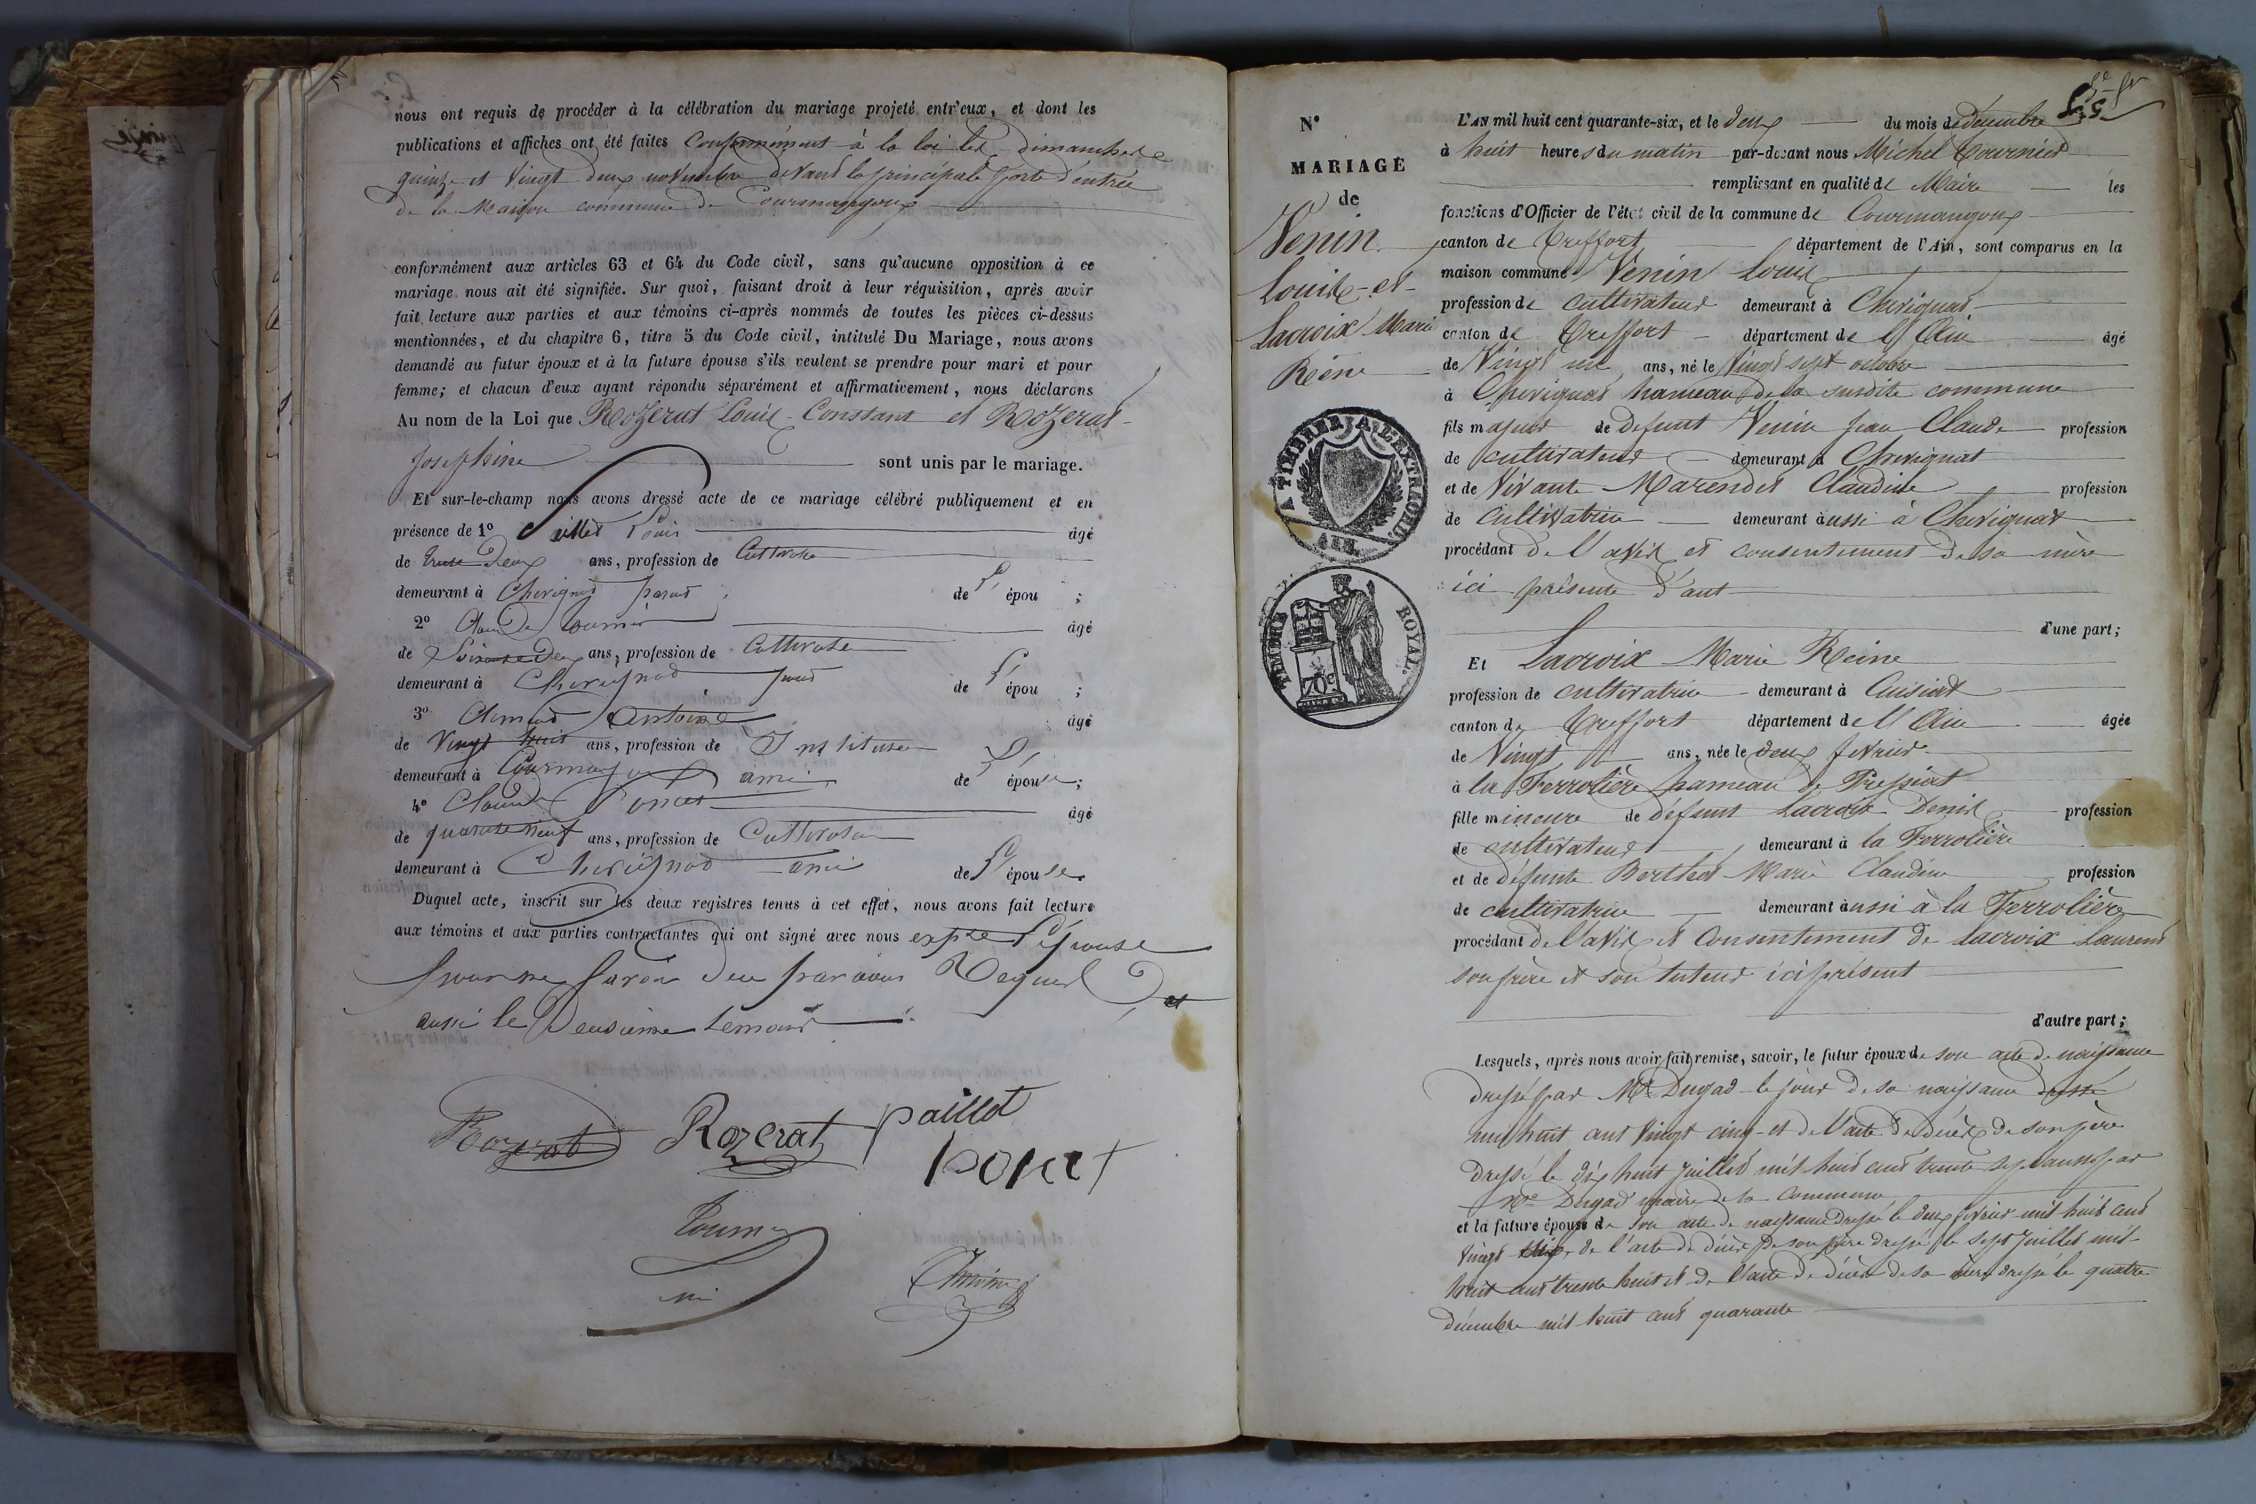 nous ont requis de procéder à la célébration du mariage projeté entr'eux, et dont les
publications et affiches ont été faites Conformément à la loi les dimanches
quinze et Vingt deux novembre devant la principale porte d'entrée
de la Maison commune de Courmangoux
conformément aux articles 63 et 64 du Code civil, sans qu'aucune opposition à ce
mariage nous ait été signifiée. Sur quoi, faisant droit à leur réquisition, après avoir
fait lecture aux parties et aux témoins ci-après nommés de toutes les pièces ci-dessus
mentionnées, et du chapitre 6, titre 5 du Code civil, intitulé Du Mariage, nous avons
demandé au futur époux et à la future épouse s'ils veulent se prendre pour mari et pour
femme; et chacun d'eux ayant répondu séparément et affirmativement, nous déclarons
Au nom de la Loi que Rozerat Louis Constant et Rozerat
Josephine sont unis par le mariage.
Et sur-le-champ nous avons dressé acte de ce mariage célébré publiquement et en
présence de 1° Louis âgé
de trente Deux ans, profession de
demeurant à Chevignat parent de l' épou ;
2° Claude Tournier âgé
de Soixante Deux ans, profession de Cultivateur
demeurant à Chevignat de l' épou ;
3° Antoine âgé
de Vingt huit ans, profession de Instituteur
demeurant à Courmangoux ami de l' épouse;
4° Claude Poncet âgé
de quarante neuf ans, profession de Cultivateur
demeurant à Chevignat ami de l' épouse
Duquel acte, inscrit sur les deux registres tenus à cet effet, nous avons fait lecture
aux témoins et aux parties contractantes qui ont signé avec nous l'épouse
Requis et
aussi le Deuxième témoin
Rozerat Rozerat paillet
poncet
N°
MARIAGE
de
Venin
Louis et
Lacroix Marie
Reine
A TIMBRER A L'EXTRAORD.
AIN
TIMBRE ROYAL
70c
L'AN mil huit cent quarante-six, et le deux du mois de décembre
à huit heures du matin par-devant nous Michel Tournier
remplissant en qualité de Maire les
fonctions d'Officier de l'état civil de la commune de Courmangoux
canton de Treffort département de l'Ain, sont comparus en la
maison commune Venin Louis
profession de cultivateur demeurant à Chevignat
canton de Treffort département de l'Ain âgé
de Vingt un ans, né le Vingt sept octobre
à Chevignat hameau de la susdite commune
fils majeur de defunt Venin Jean Claude profession
de cultivateur demeurant à Chevignat
et de Vivante Marendet Claudine profession
de Cultivatrice demeurant aussi à Chevignat
procédant de l'avis et consentement de sa mère
ici présente d'aut
d'une part;
Et Lacroix Marie Reine
profession de cultivatrice demeurant à Cuisiat
canton de Treffort département de l'Ain âgée
de Vingt ans, née le deux fevrier
à la Ferrolière hameau de Pressiat
fille mineure de défunt Lacroix Denis profession
de cultivateur demeurant à la Ferrolière
et de défunte Berthet Marie Claudine profession
de cultivatrice demeurant aussi à la Ferrolière
procédant de l'avis et Consentement de Lacroix Laurent
son frère et son tuteur ici présent
d'autre part;
Lesquels, après nous avoir fait remise, savoir, le futur époux de son acte de naissance
dressé par Mr Dugad le jour de sa naissance
mil huit cent Vingt cinq et de l'acte de décès de son père
dressé le dix huit Juillet mil huit cent trente sept aussi par
Mr Dugad maire de la commune
et la future épouse de son acte de naissance dressé le deux fevrier mil huit cent
Vingt de l'acte de décès de son père dressé le sept Juillet mil
huit cent trente huit et de l'acte de décès de sa mère dressé le quatre
décembre mil huit cent quarante